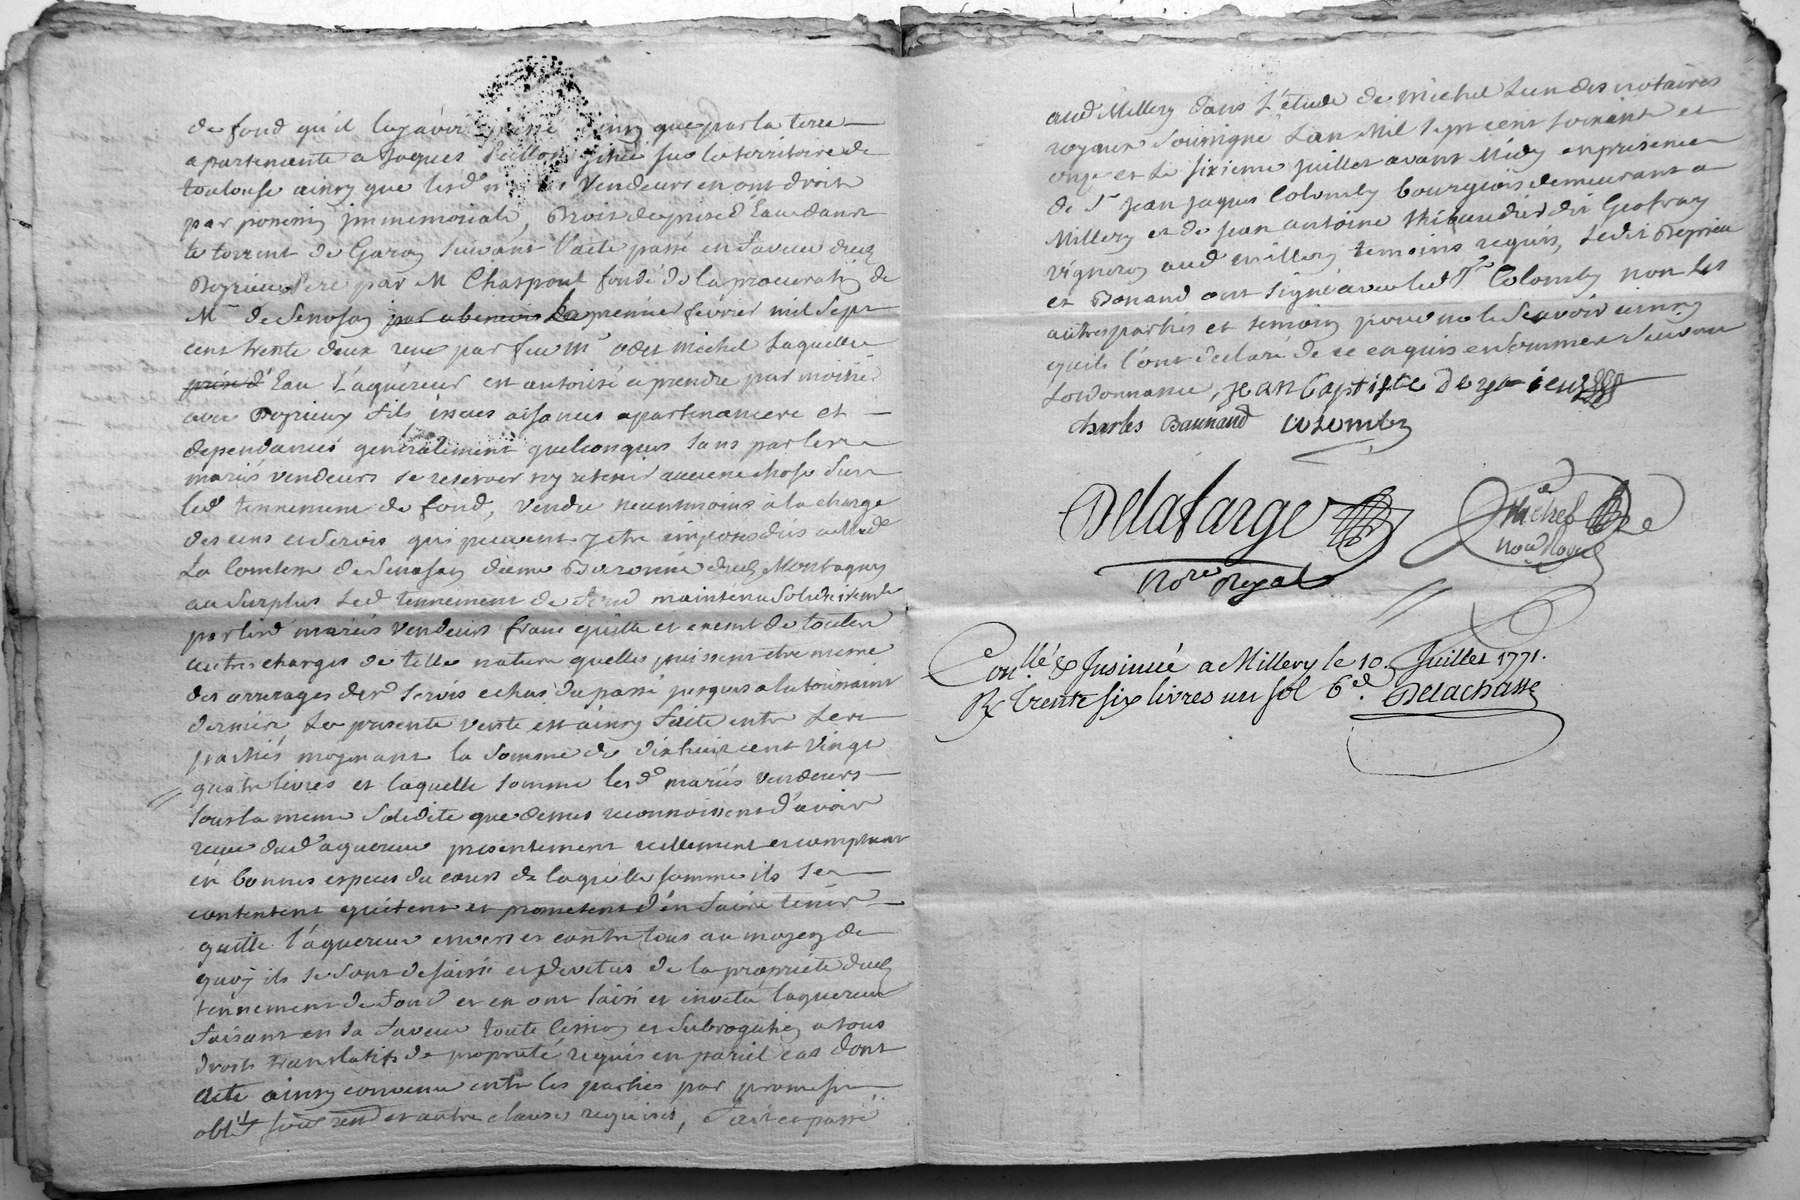 de fond qu'il luy avoit ainsy que par la terre
apartenante a Jaques size sur le territoire de
toulouse ainsy que lesd Vendeurs en ont droit
par possession immemoriale, Droit de prise d'Eau dans
le torrent de Garon suivant l'acte passé en faveur dud
Deyrieux Pere par M Chaspoul fondé de la procurâon de
M. de Senosan par abenevis Le premier fevrier mil sept
cens trente deux receu par feu Me odet Michel Laquelle
prise d'Eau L'aquereur est autorisé a prendre par moitié
avec Deyrieux fils issues aisances apartenances et
dependances generalement quelconques sans par lesd
mariés vendeurs se reserver ny retenir aucune chose sur
led tennement de fond, vendu neantmoins a la charge
des cens et servis qui peuvent y etre imposés dus a Made
La Comtesse de Senosan dame Baronne dud Montagny
au surplus Led tennement de fond maintenu solidairemt
par lesd mariés vendeurs franc quitte et exempt de toutes
autres charges de telle nature quelles puissent etre meme
des arrerages desd servis echus du passé jusques a la toussaint
derniere, La presente vente est ainsy faite entre Les
parties moyenant la somme de dix huit cent vingt
quatre livres et laquelle somme lesd mariés vendeurs
sous la meme solidité que dessus reconnoissent d'avoir
receu dud aquereur presentement reellement et comptant
en bonnes especes du cours de laquelle somme ils se
contentent quittent et promettent d'en faire tenir
quitte l'aquereur envers et contre tous au moyen de
quoy ils se sont desaisis et devetus de la propriété dud
tennement de fond et en ont saisi et investu laquereur
faisant en sa faveur toute cession et subrogation a tous
droits translatifs de propriété requis en pareil cas dont
acte ainsy convenu entre les parties par promesse
oblt sous rend et autre clauses requises, Fait et passé
aud Millery dans L'etude de Michel L'un des notaires
royaux soussigné L'an Mil sept cent soixante et
onze et Le sixieme juillet avant Midy en presence
de Sr Jean Jaques Colomby bourgeois demeurant a
Millery et de Jean antoine thibaudier dit Geofray
vigneron aud millery temoins requis, Ledit Deyrieu
et Bonand ont signé avec led Sr Colomby non les
autres parties et temoin pour ne le sçavoir ainsy
quils l'ont declaré de ce enquis et sommés suivant
Lordonnance, Jean Baptiste Deyrieux
charles Baunand colomby
Delafarge
Nore Royal
Michel
nore Royal
Conllé & Insinué a Millery le 10. Juillet 1771.
R trente six livres un sol 6d. Delachasse